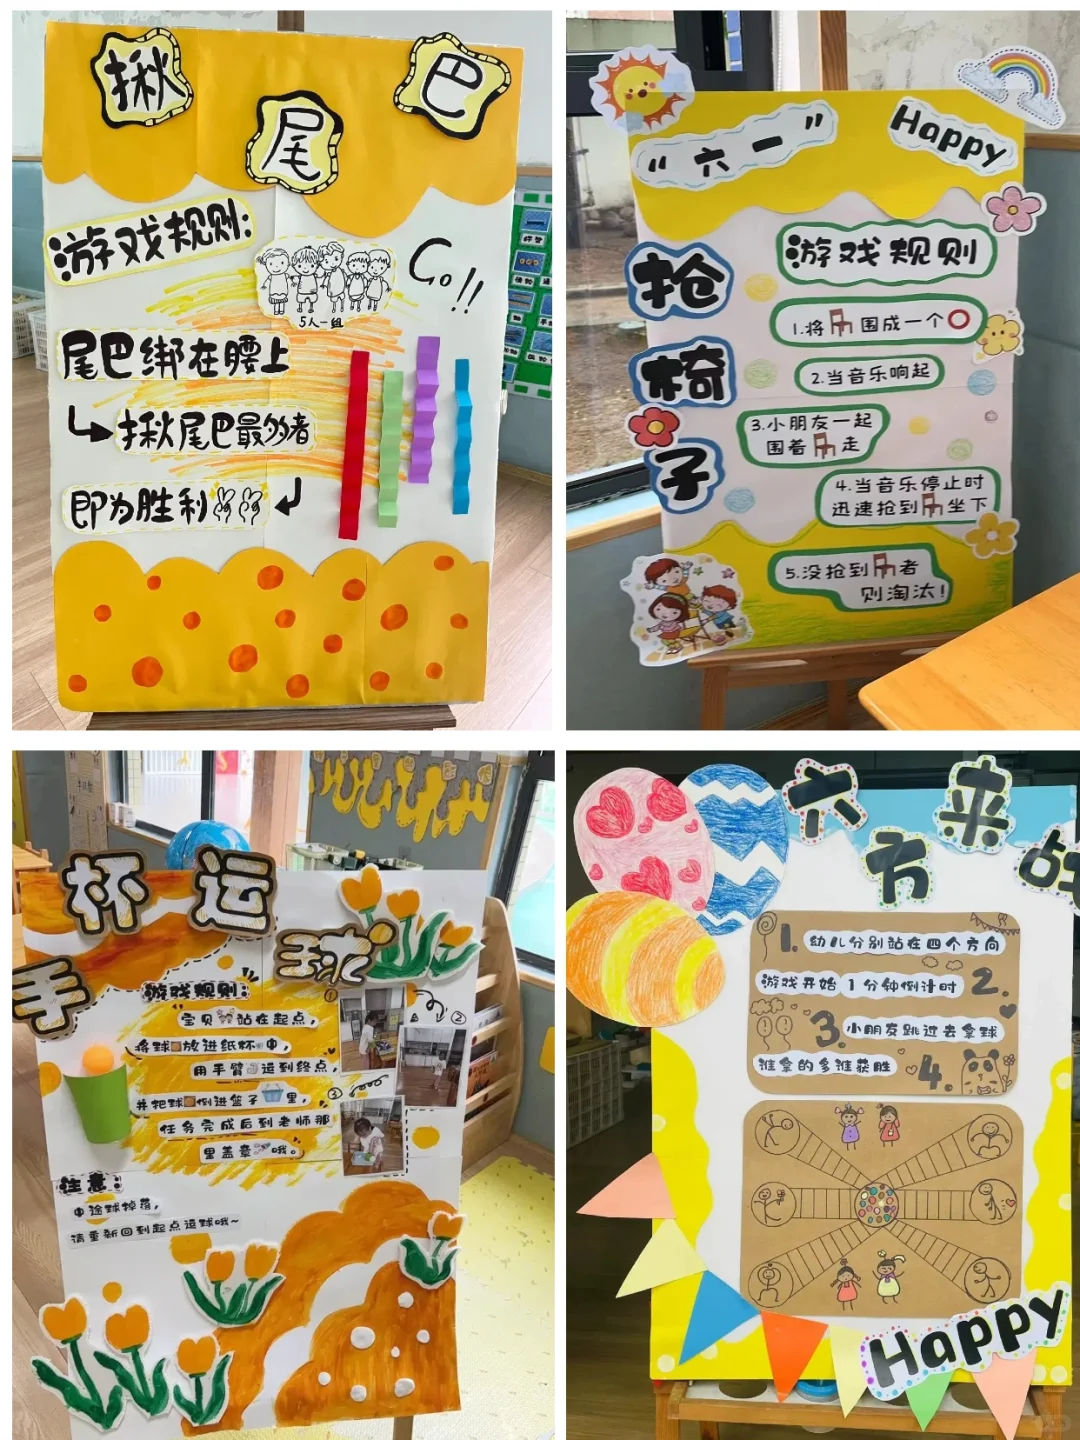 揪尾巴
游戏规则:
Go!!
5人一组
尾巴绑在腰上
揪尾巴最多者
即为胜利
“六一”
Happy
抢椅子
游戏规则
1.将 围成一个
2.当音乐响起
3.小朋友一起
围着 走
4.当音乐停止时
迅速抢到 坐下
5.没抢到 者
则淘汰!
手杯运球
游戏规则:
宝贝 站在起点,
将球 放进纸杯中,
用手臂 运到终点,
并把球 倒进篮子 里,
任务完成后到老师那
里盖章 哦。
①
②
③
注意:
中途球掉落,
请重新回到起点运球哦~
六方来战
1.幼儿分别站在四个方向
游戏开始1分钟倒计时 2.
3.小朋友跳过去拿球
谁拿的多谁获胜 4.
Happy